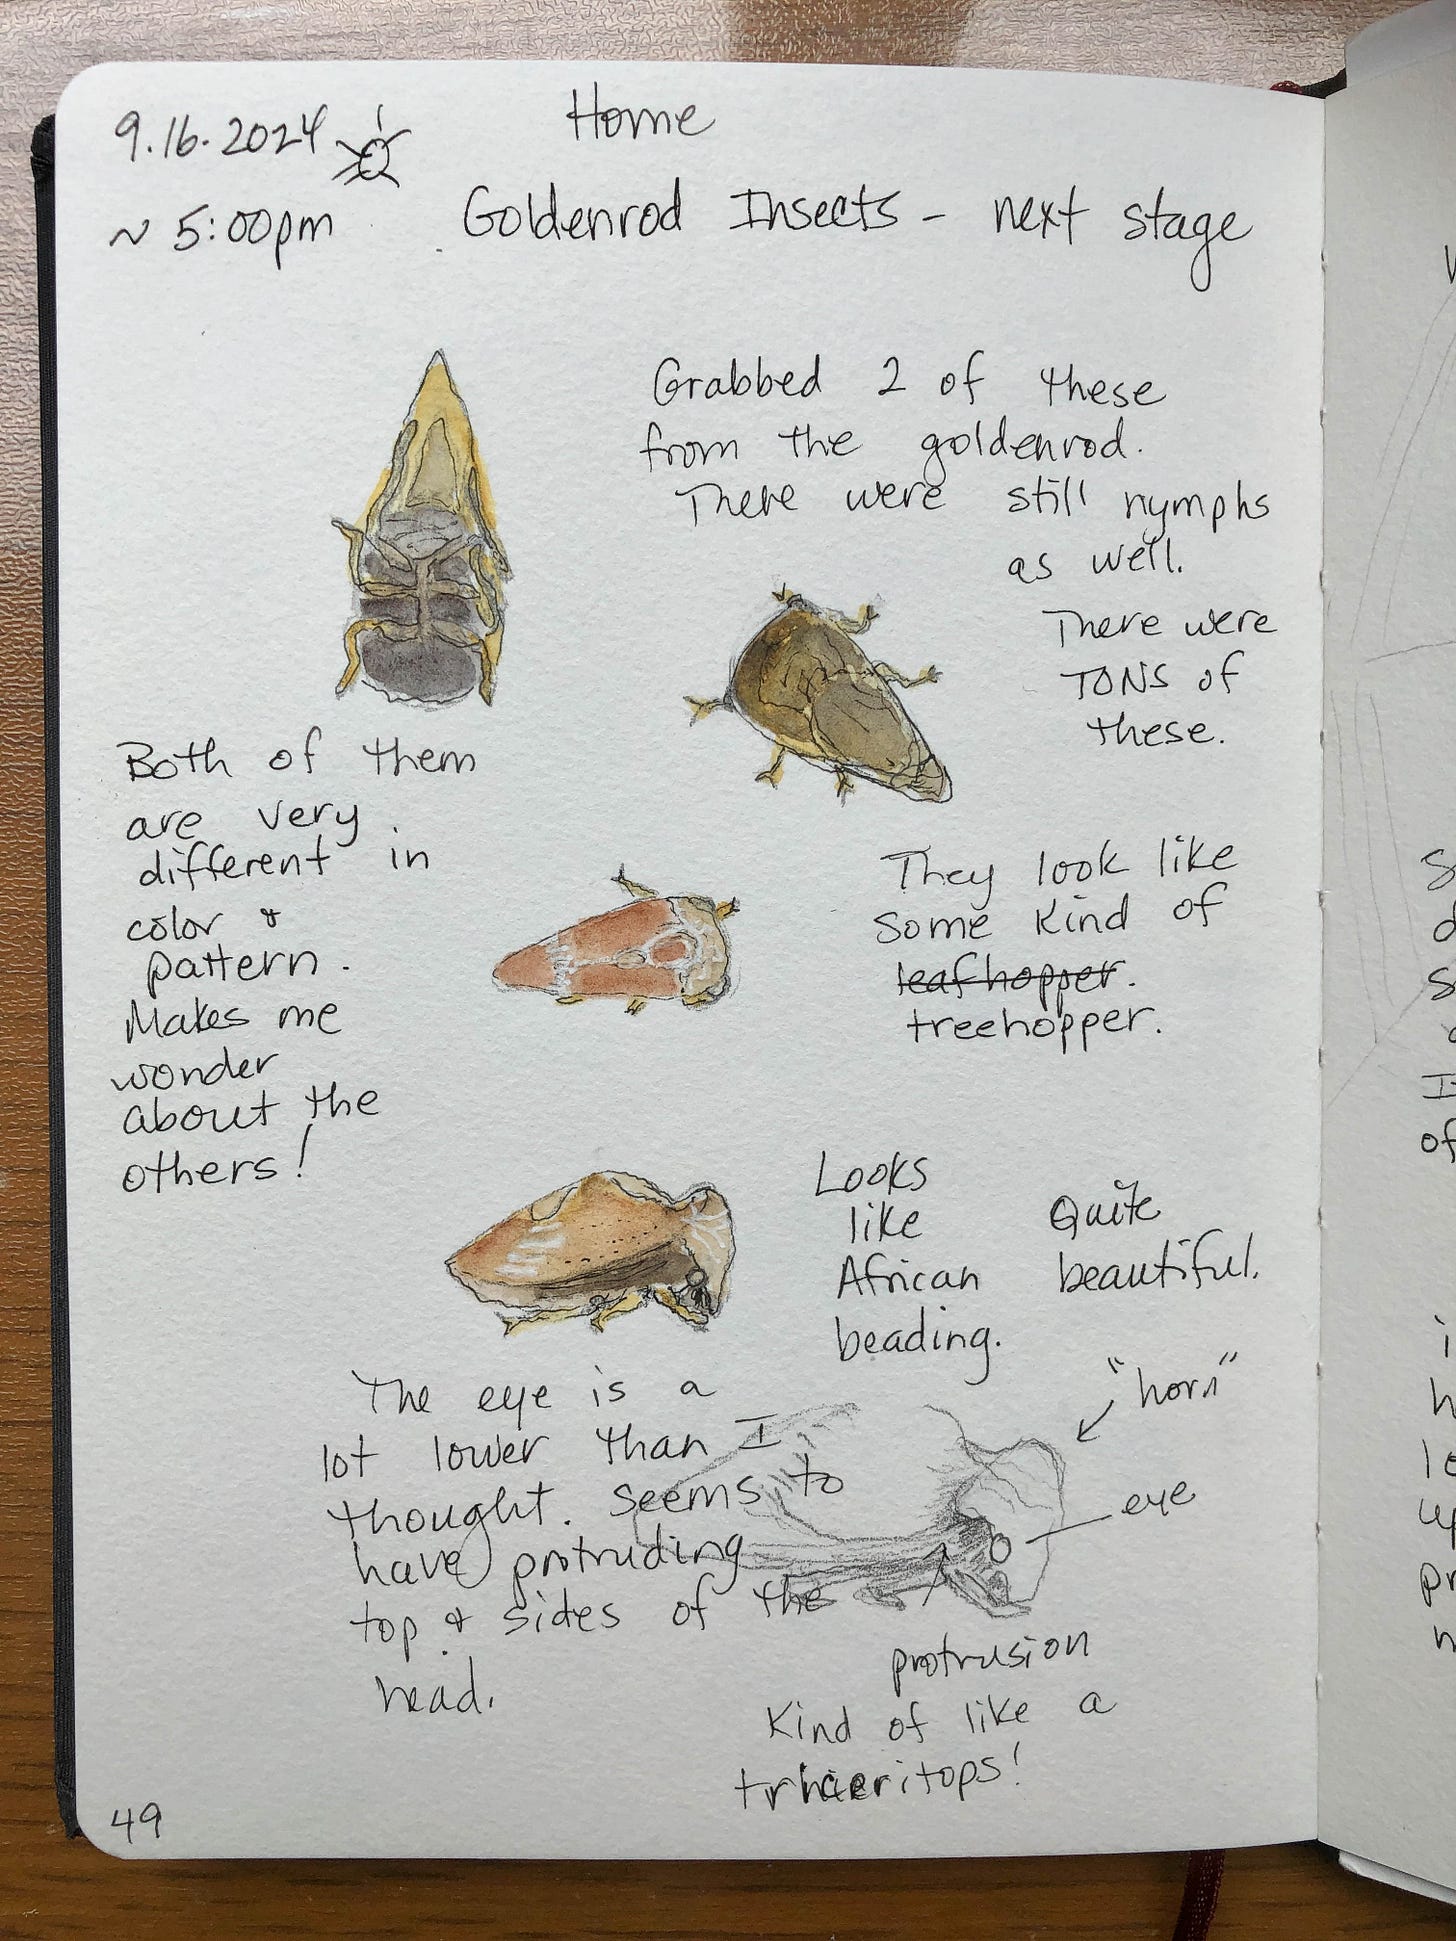 9.16.2024
~ 5:00pm
Home
Goldenrod Insects - next stage
Grabbed 2 of these
from the goldenrod.
There were still nymphs
as well.
There were
TONS of
these.
Both of them
are very
different in
color &
pattern.
Makes me
wonder
about the
others!
They look like
some kind of
leafhopper.
treehopper.
Looks
like
African
beading.
Quite
beautiful.
The eye is a
lot lower than I
thought. Seems to
have protruding
top & sides of the
head.
"horn"
eye
protrusion
Kind of like a
49